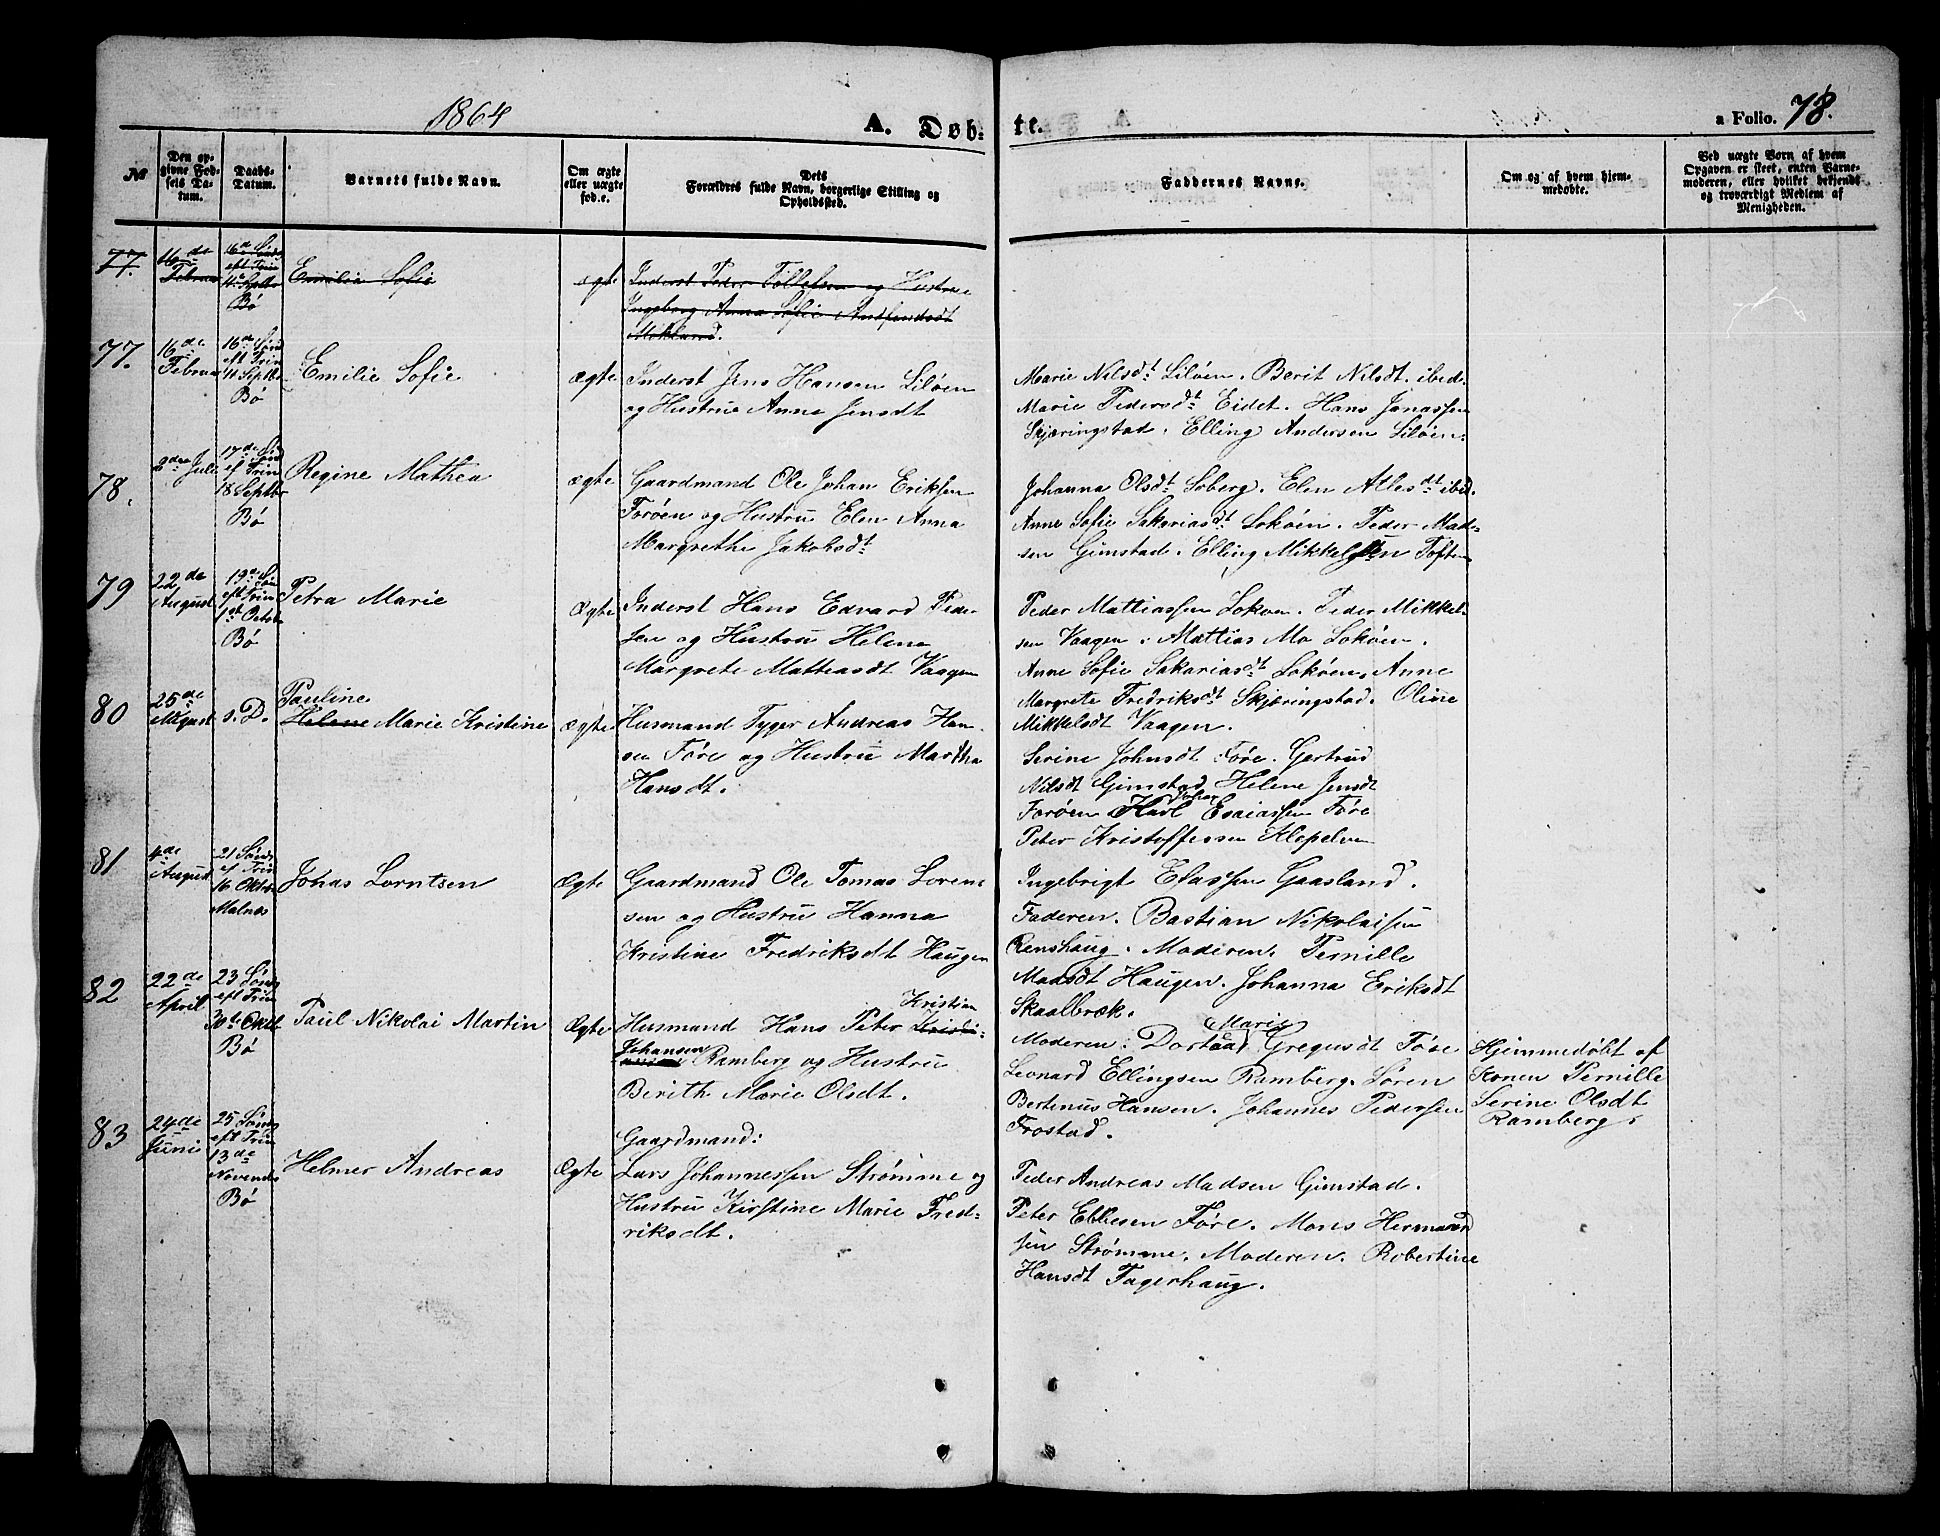 1864
A. Døb-
te.
a Folio. 78.
№
Den op-
givne Fød-
sels Da-
tum.
Daabs-
Datum.
Barnets fulde Navn.
Om ægte
eller uægte
fød.e.
Dets
Forældres fulde Navn, borgerlige Stilling og
Opholdssted.
Faddernes Navne.
Om og af hvem hjem-
medøbte.
Ved uægte Børn af hvem
Opgaven er skeet, enten Barne-
moderen, eller hvilket bekjendt
og troværdigt Medlem af
Menigheden.
77.
16de
Februar
16de Sønd
eft Trin
11 Septbr
Bø
Emilie Sofie
ægte
Inderst Peder Tollefsen og Hustrue
Ingeborg Anna Sofie
Mikland.
77.
16de
Februar
16de Sønd
eft Trin
11 Septbr
Bø
Emilie Sofie
ægte
Inderst Jens Hansen Liløen
og Hustrue Anne Jensdt
Marie Nilsdt Liløen. Berit Nilsdt. ibid.
Marie Pedersdt Eidet. Hans Jonassen
Skjæringstad. Elling Andersen Liløen.
78.
2den Juli
17de Sønd
ef Trin
18 Septbr
Bø
Regine Mathea
ægte
Gaardmand Ole Johan Eriksen
Forøen og Hustru Elen Anna
Margrethe Jakobsdt
Johanna Olsdt Soberg. Elen Atlesdt ibid.
Anne Sofie Sakariasdt Lokøen. Peder Mad-
sen Gimstad. Elling Mikkelsen Toften
79
22de
August
19de Søn
eft Trin
1st Octob
Bø
Petra Marie
Ægte
Inderst Hans Edvard Peder-
sen og Hustru Helena
Margrete Matteasdt Vaagen
Peder Mattiassen Lokøen. Peder Mikkel-
sen Vaagen. Mattias Mo Lokøen.
Anne Sofie Sakariasdt Lokøen. Anne
Margrete Fredriksdt Skjæringstad. Oline
Mikkelsdt Vaagen.
80
25de
August
s. D.
Pauline
Helene Marie Kristine
Ægte
Husmand Tyger Andreas Han-
sen Føre og Hustru Martha
Hansdt.
Serine Johnsdt Føre. Gertrud
Nilsdt Gimstad Helene Jensdt
Johan
Forøen Karl Esaiassen Føre
Peter Kristoffersen Klepelen
81
4de
August
21 Sønd
ef Trin
16 Oktbr
Malnæs
Johas Lorntsen
Ægte
Gaardmand Ole Tomas Loren-
sen og Hustru Hanna
Kristine Fredriksdt Haugen
Ingebrigt Efassen Gaasland.
Faderen. Bastian Nikolaisen
Renshaug. Moderen. Pernille
Monsdt Haugen. Johanna Eriksdt
Skaalbræk.
82
22de
April
23 Sønd
eft Trin
30te Oktb
Bø
Paul Nikolai Martin
Ægte
Kristian
Husmand Hans Peter Kristi-
Johansen
Ramberg og Hustru
Birith Marie Olsdt.
Marie
Moderen. Dortea Gregusdt Føre
Leonard Ellingsen Ramberg. Søren
Bertinus Hansen. Johannes Pedersen
Frostad.
Hjemmedøbt af
Konen Pernille
Serine Olsdt
Ramberg.
83
24de
Juni
25 Sønd
eft Trin
13de
Novemb
Bø
Helmer Andreas
Ægte
Gaardmand:
Lars Johannessen Strømme og
Hustru Kirstine Marie Fred-
riksdt.
Peder Andreas Madsen Gimstad.
Peter Ebbesen Føre. Mons Hermand
sen Strømme. Moderen. Robertine
Hansdt Fagerhaug.